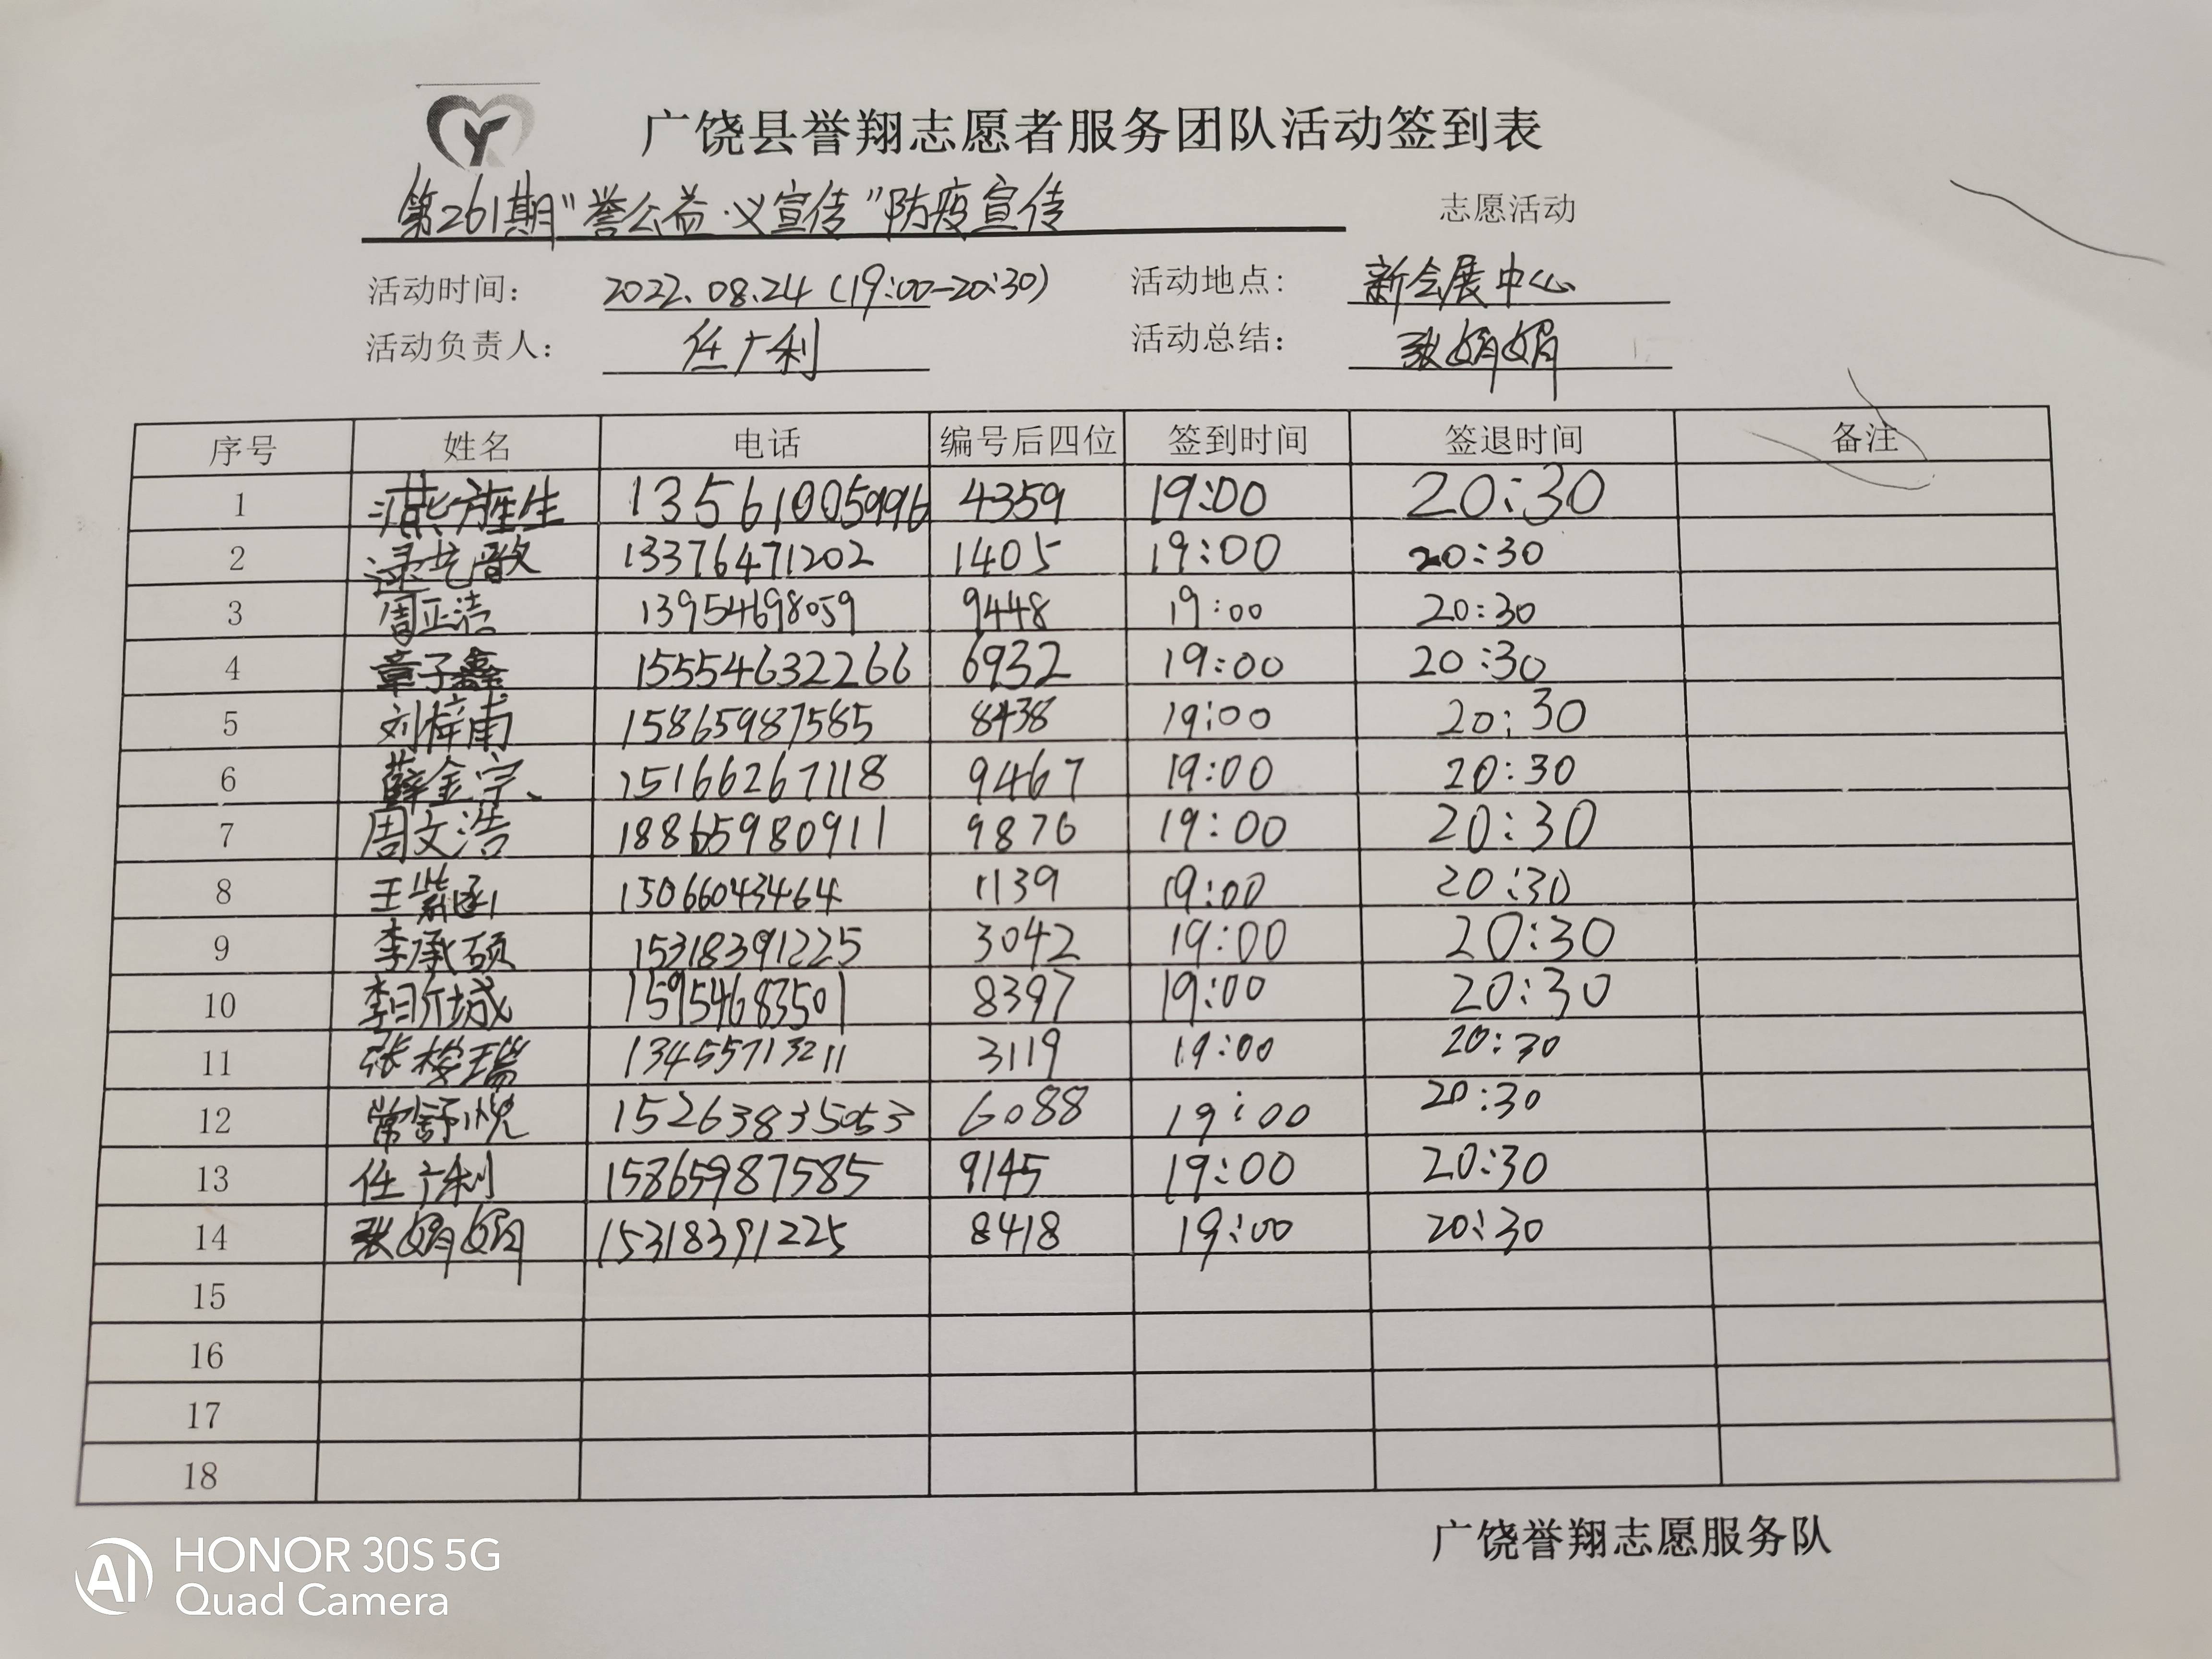 广饶县誉翔志愿者服务团队活动签到表
第261期"誉公益·义宣传"防疫宣传 志愿活动
活动时间: 2022.08.24 (19:00-20:30) 活动地点: 新会展中心
活动负责人: 任广利 活动总结: 张娟娟
序号 姓名 电话 编号后四位 签到时间 签退时间 备注
1 13561005996 4359 19:00 20:30
2 13376471202 1405 19:00 20:30
3 周正洁 13954698059 9448 19:00 20:30
4 章子鑫 15554632266 6932 19:00 20:30
5 刘梓甫 15865987585 8438 19:00 20:30
6 薛金宗 15166267118 9467 19:00 20:30
7 周文浩 18865980911 9876 19:00 20:30
8 王紫函 15066043464 1139 19:00 20:30
9 李承硕 15318391225 3042 19:00 20:30
10 李昕城 15954683501 8397 19:00 20:30
11 张梭瑞 13455713211 3119 19:00 20:30
12 常舒悦 15263835053 6088 19:00 20:30
13 任广利 15865987585 9145 19:00 20:30
14 张娟娟 15318391225 8418 19:00 20:30
15
16
17
18
广饶誉翔志愿服务队
AI HONOR 30S 5G
Quad Camera